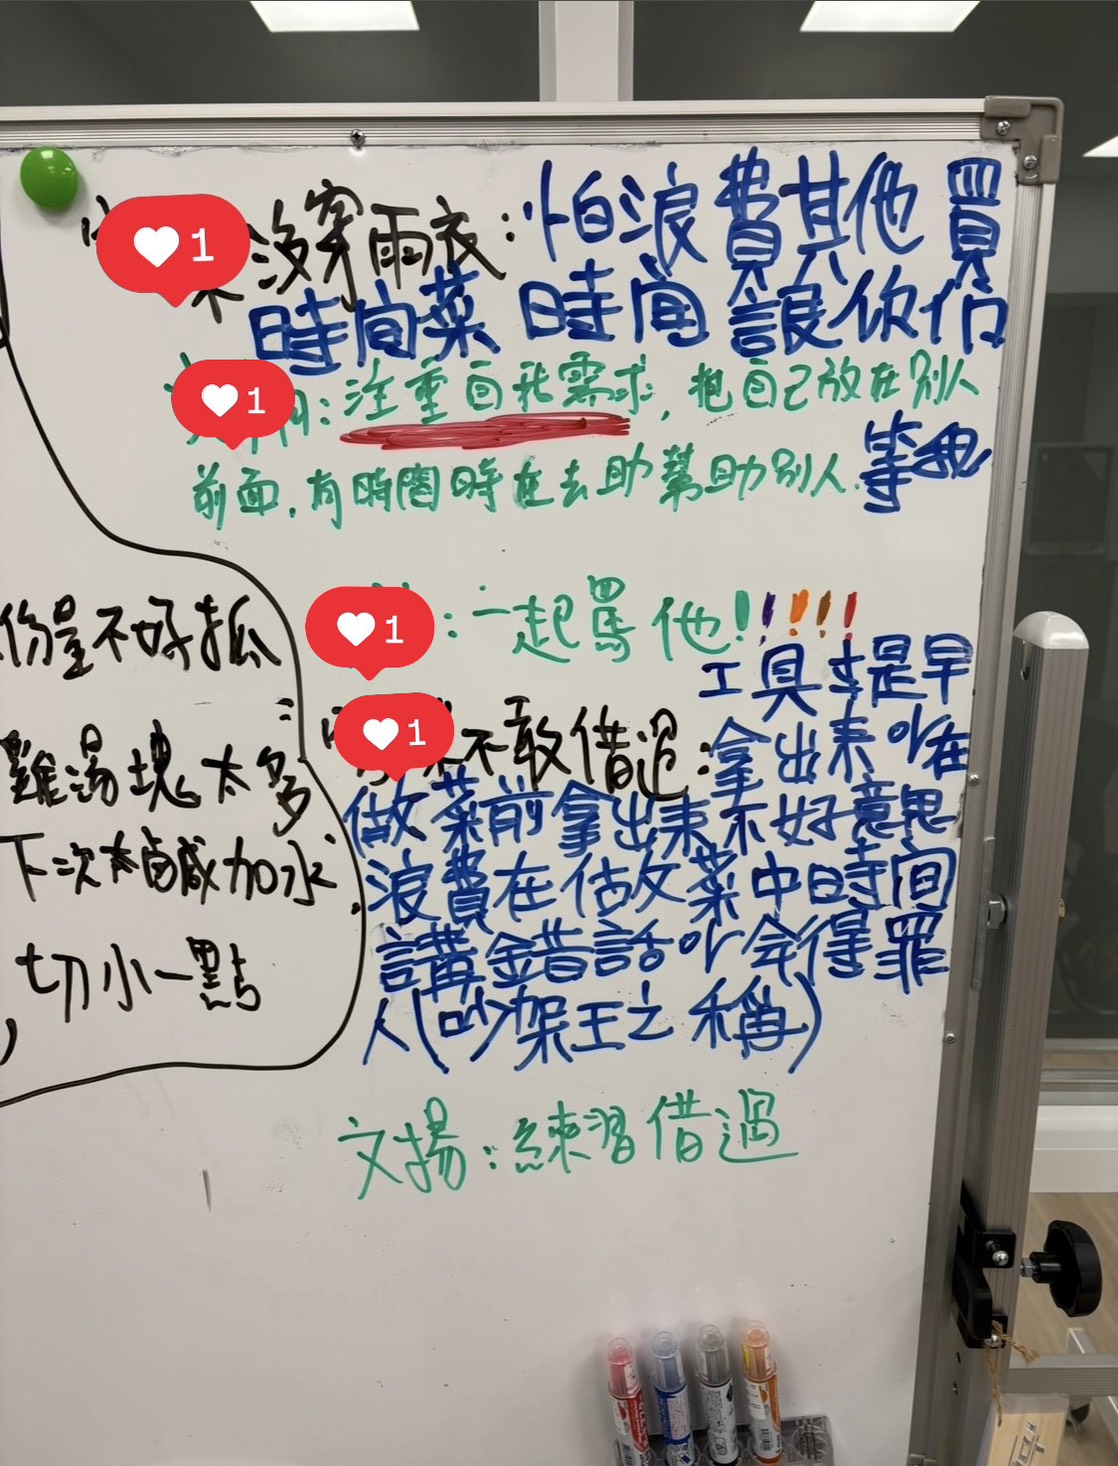 1
沒穿雨衣：怕浪費其他買
時間菜 時間 讓你佔
1
：注重自我需求，把自己放在別人
前面，有時間時在去助幫助別人. 等我
1
：一起罵他！！！！！
1
不敢借過：
工具才是早
拿出来吖在
做菜前拿出来不好意思
浪費在估做菜中時間
講錯話吖会得罪
人(吵架王之稱)
文揚：練習借過
份量不好抓
雞湯塊太多
下次太鹹加水
切小一點